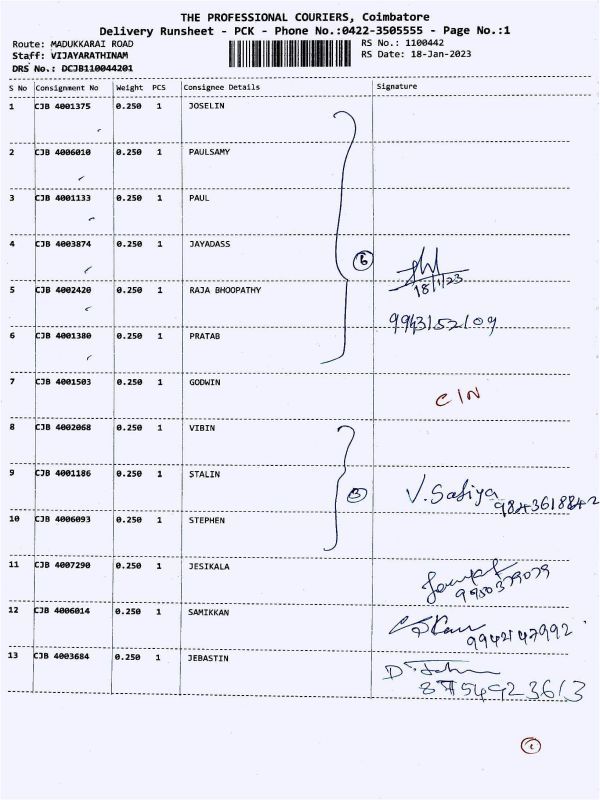 THE PROFESSIONAL COURIERS, Coimbatore
Delivery Runsheet - PCK - Phone No.:0422-3505555 - Page No.:1
Route: MADUKKARAI ROAD RS No.: 1100442
Staff: VIJAYARATHINAM RS Date: 18-Jan-2023
DRS No.: DCJB110044201
S No Consignment No Weight PCS Consignee Details Signature
1 CJB 4001375 0.250 1 JOSELIN
2 CJB 4006010 0.250 1 PAULSAMY
3 CJB 4001133 0.250 1 PAUL
4 CJB 4003874 0.250 1 JAYADASS
6
18/1/23
5 CJB 4002420 0.250 1 RAJA BHOOPATHY
9943152109
6 CJB 4001380 0.250 1 PRATAB
7 CJB 4001503 0.250 1 GODWIN
C/N
8 CJB 4002068 0.250 1 VIBIN
9 CJB 4001186 0.250 1 STALIN
3 V. Safiya
9843618842
10 CJB 4006093 0.250 1 STEPHEN
11 CJB 4007290 0.250 1 JESIKALA
12 CJB 4006014 0.250 1 SAMIKKAN
9942147992
13 CJB 4003684 0.250 1 JEBASTIN
8754923613